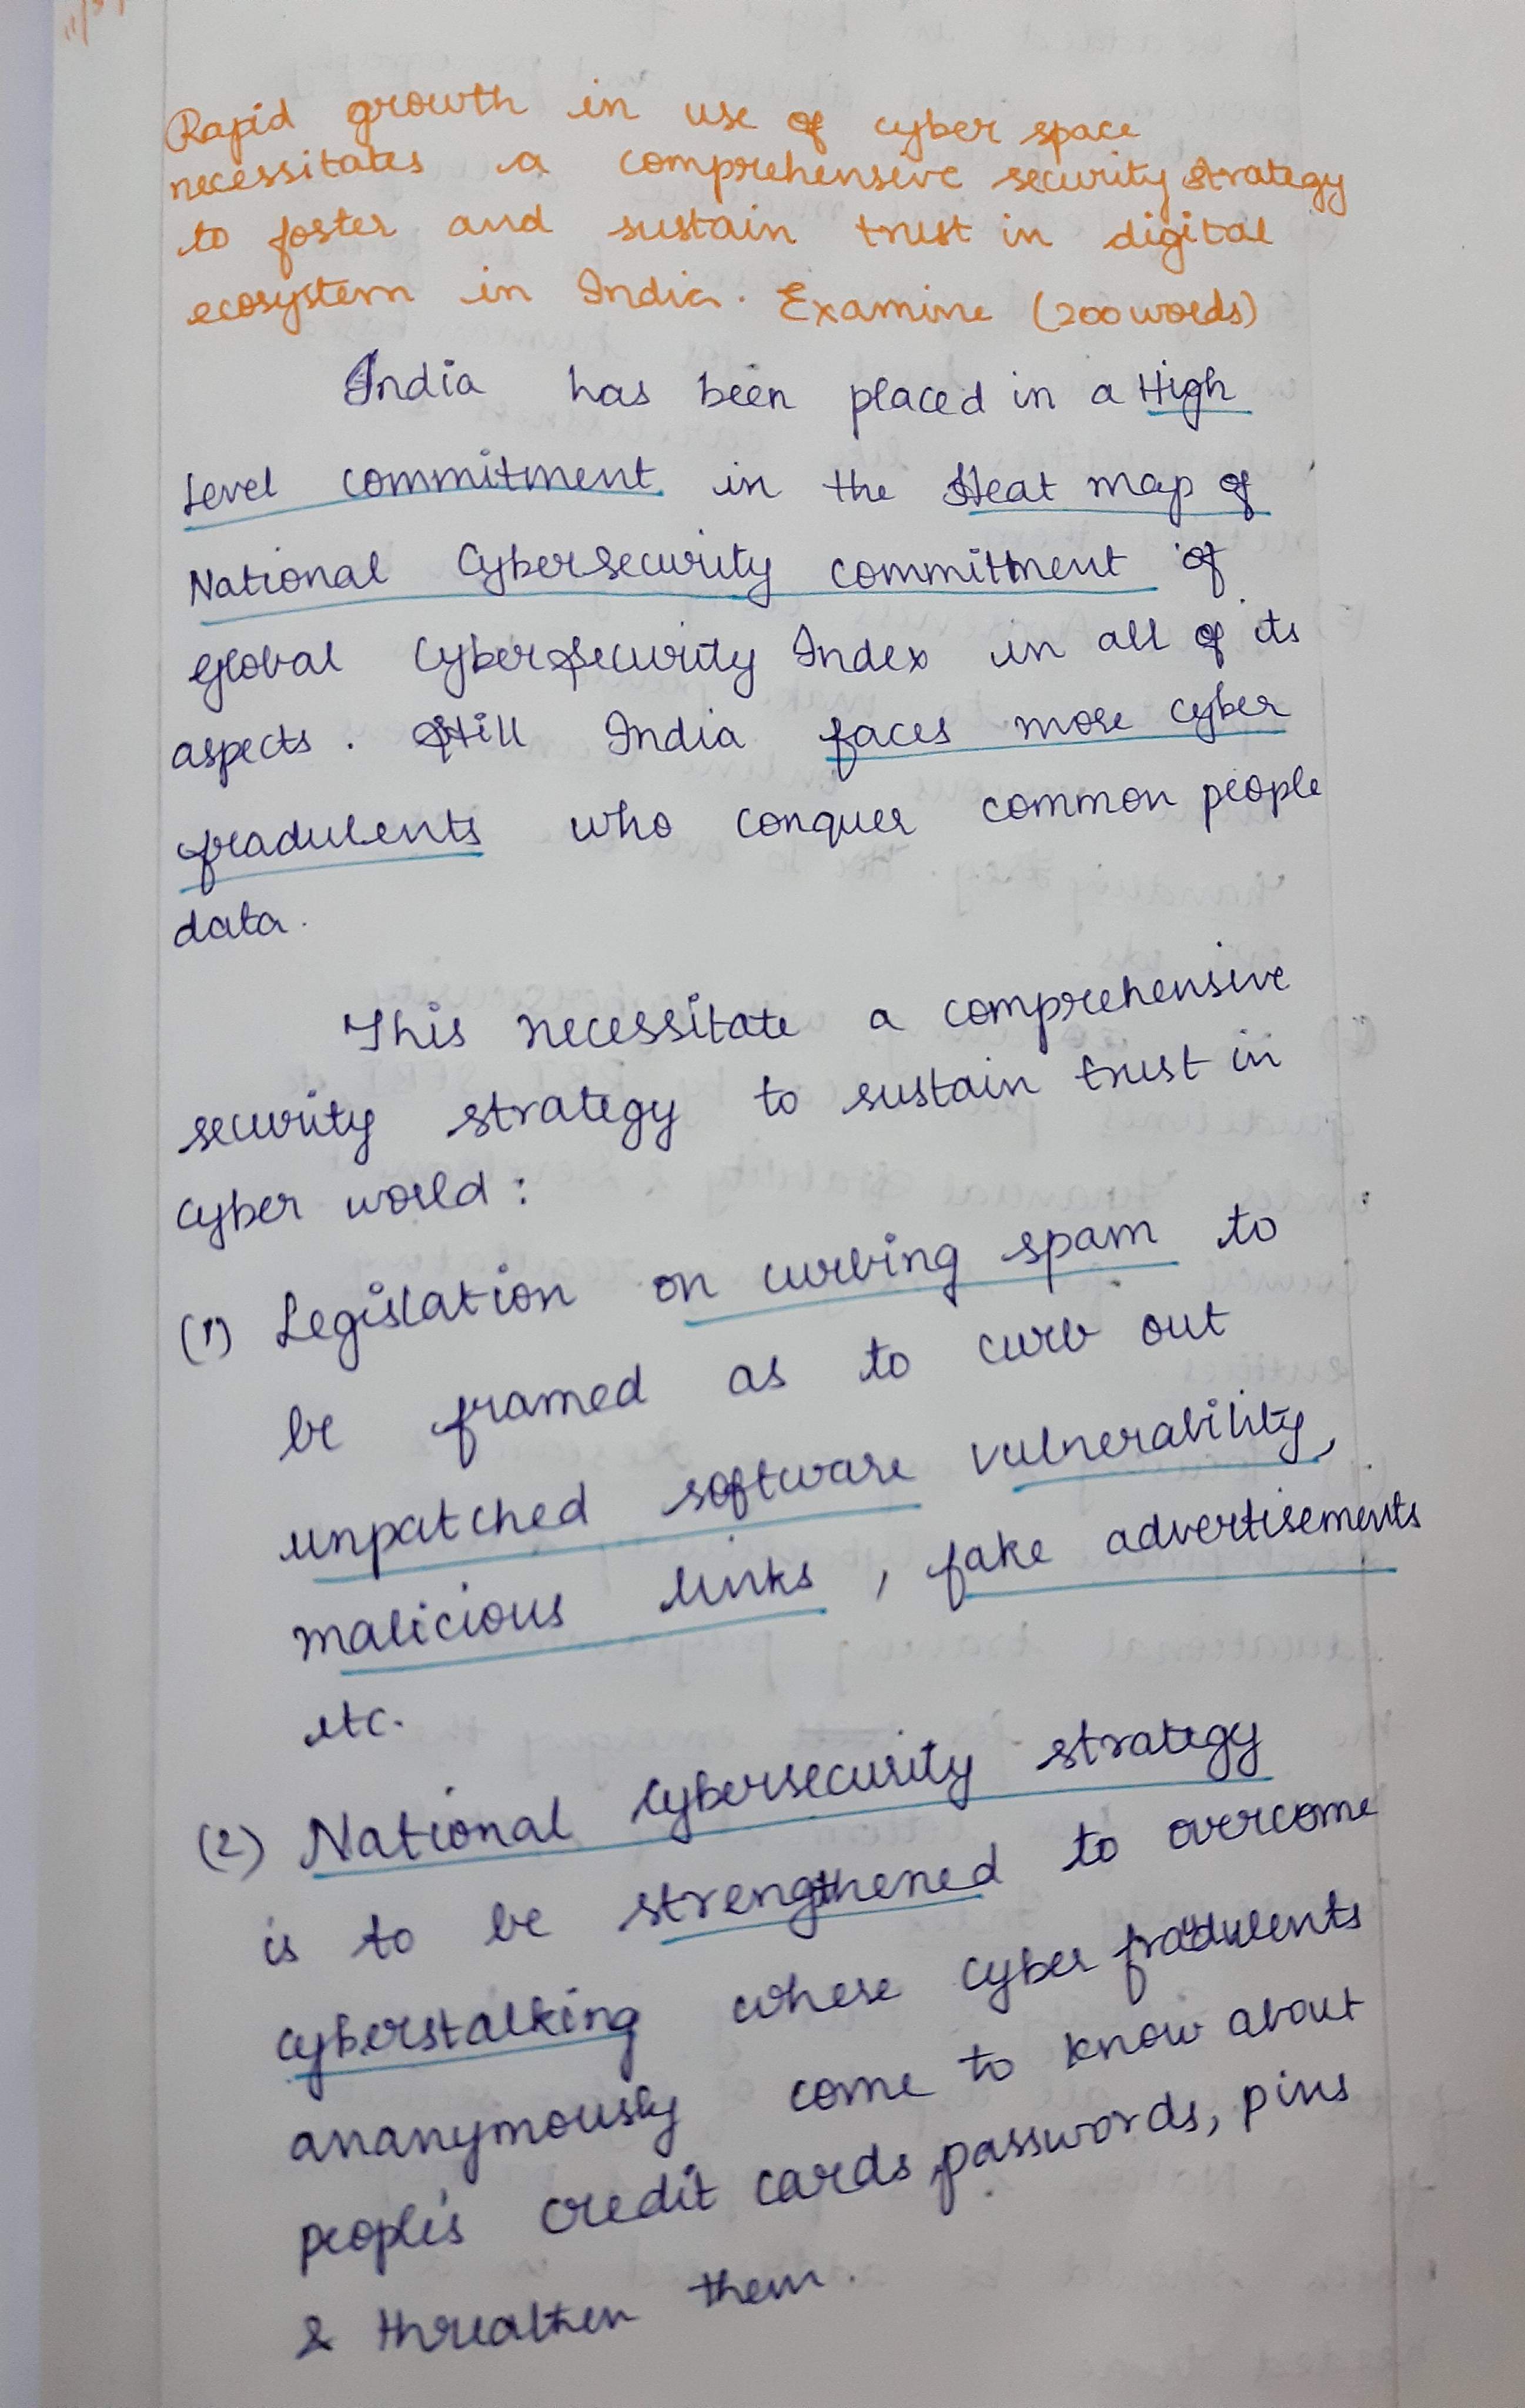 Rapid growth in use of cyber space
necessitates a comprehensive security strategy
to foster and sustain trust in digital
ecosystem in India. Examine (200 words)
India has been placed in a High
Level commitment in the Heat map of
National Cybersecurity commitment of
Global Cybersecurity Index in all of its
aspects. Still India faces more cyber
fradulents who conquer common people
data.
This necessitate a comprehensive
security strategy to sustain trust in
cyber world:
(1) Legislation on curbing spam to
be framed as to curb out
unpatched software vulnerability,
malicious links, fake advertisements
etc.
(2) National Cybersecurity strategy
is to be strengthened to overcome
cyberstalking where cyber fradulents
ananymously come to know about
people's credit cards, passwords, pins
& threathen them.